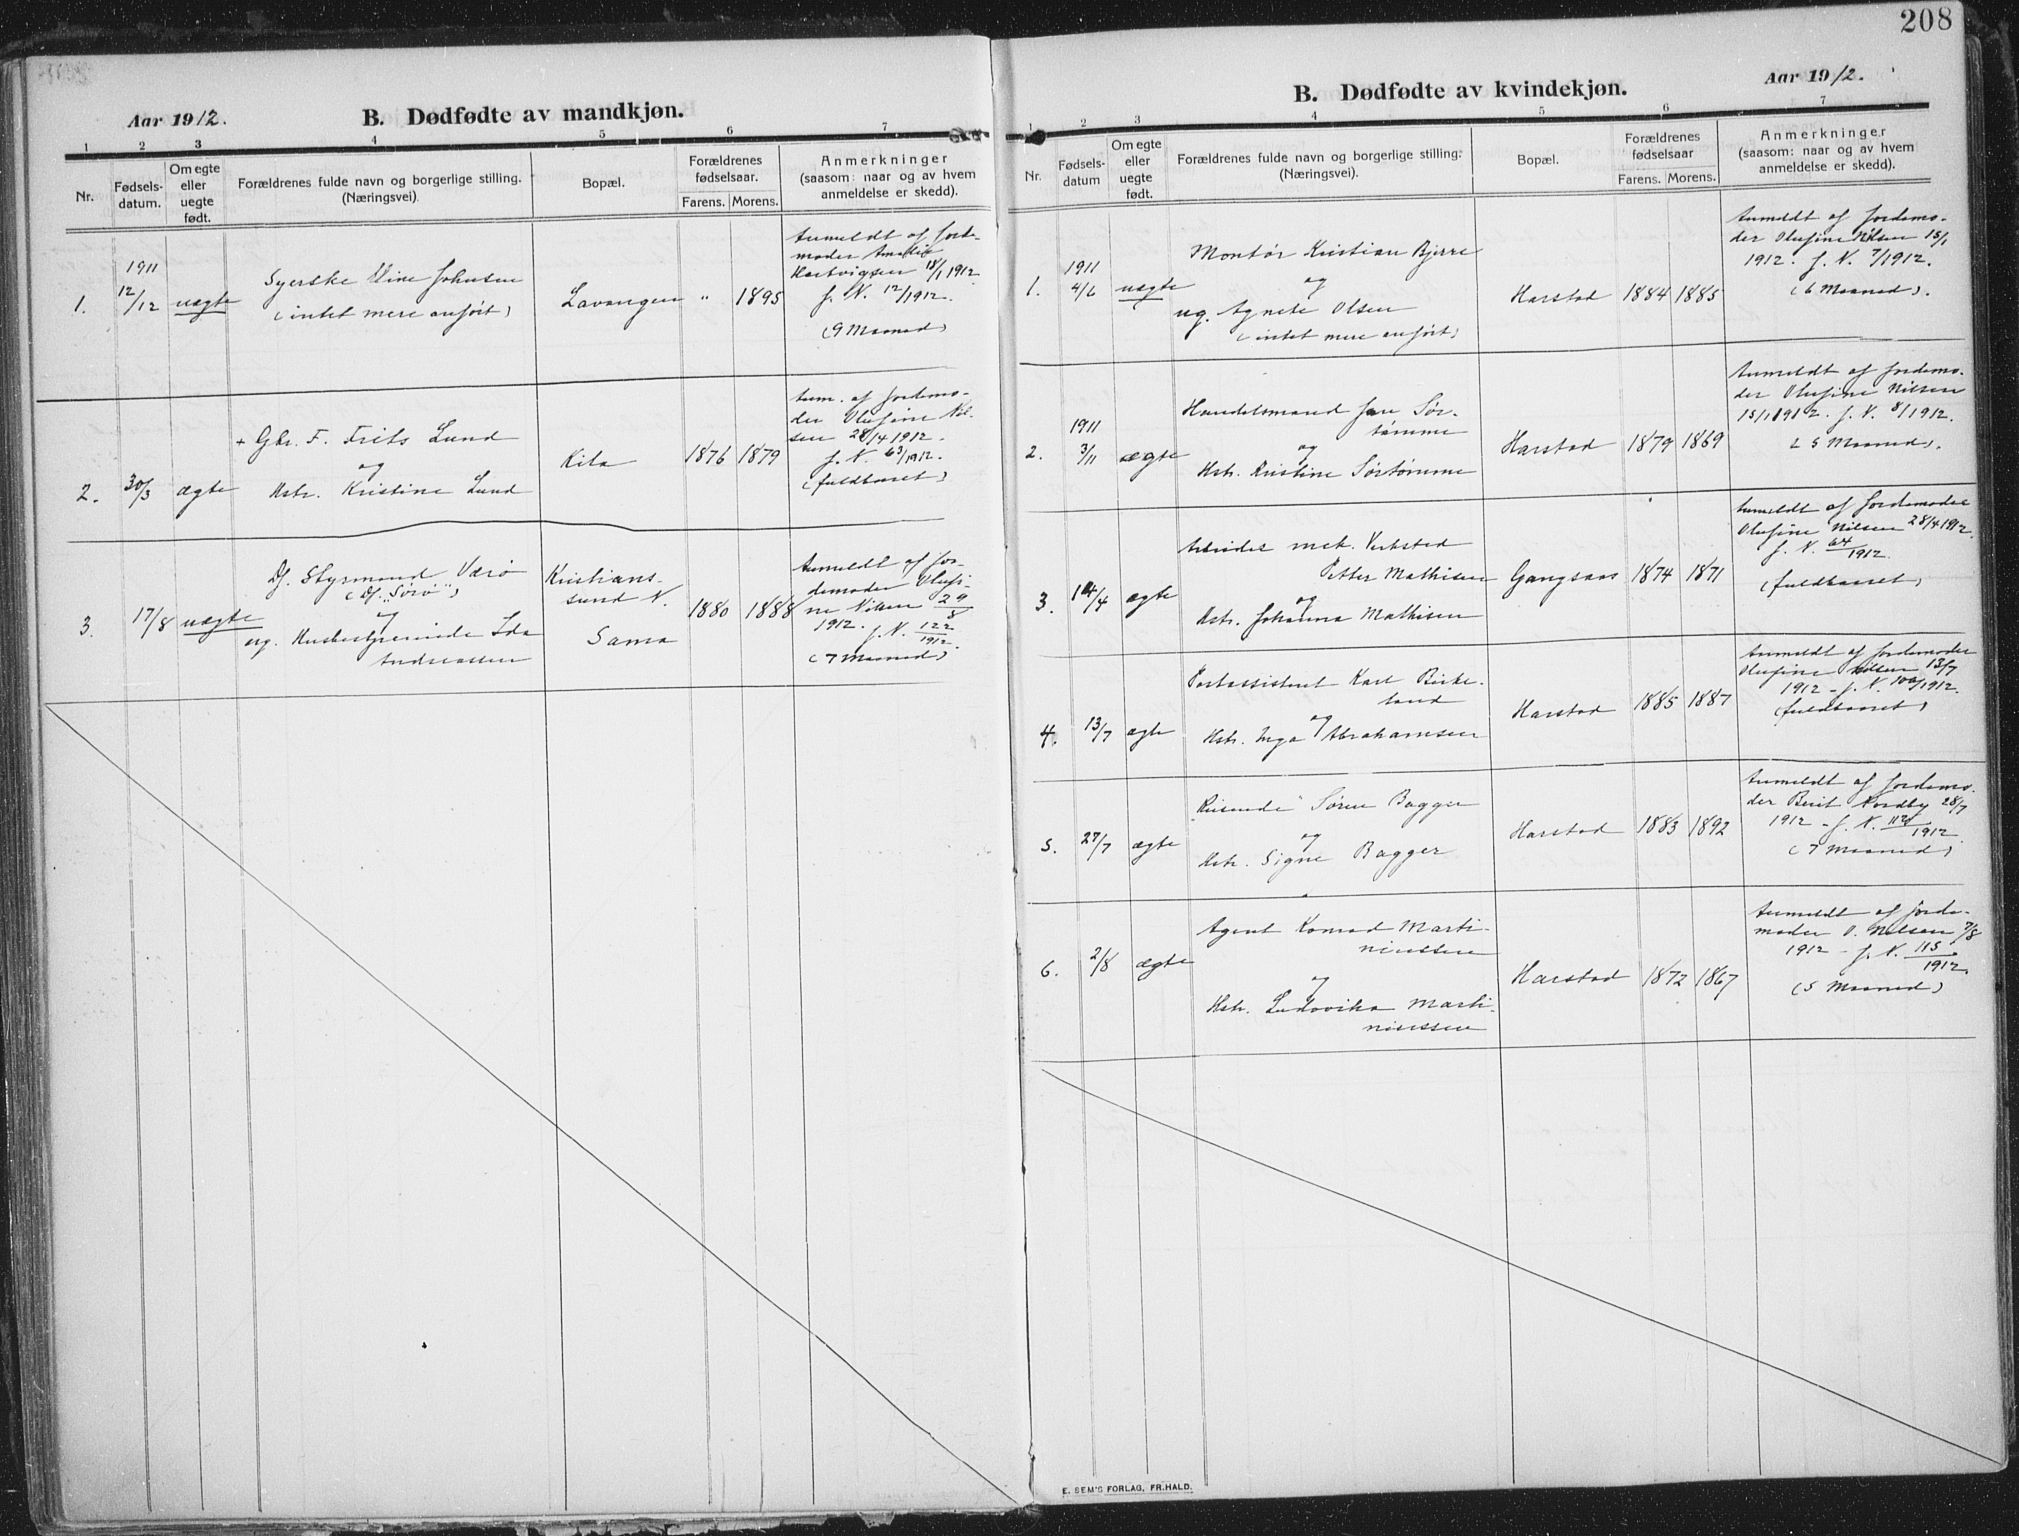 Aar 1912.
B. Dødfødte av mandkjøn.
1 2 3 4 5 6 7
Nr.
Fødsels-
datum.
Om egte
eller
uegte
født.
Forældrenes fulde navn og borgerlige stilling.
(Næringsvei).
Bopæl.
Forældrenes
fødselsaar.
Farens. Morens.
Anmerkninger
(saasom: naar og av hvem
anmeldelse er skedd).
1.
1911
12/12
uægte
Syerske Line Johnsen
(intet mere anført)
Lavangen
"
1895
Anmeldt af Jorde-
moder Amalie
Hartvigsen 18/1 1912.
J. N. 12/1912.
(9 Maaned)
2.
30/3
ægte
+ Gbr. F. Frits Lund
og
Hstr. Kristine Lund
Kila
1876
1879
Anm. af Jordemo-
der Olufine Nil-
sen 28/4 1912.
J. N. 63/1912.
(fuldbaaret)
3.
17/8
uægte
Df. Styrmand Værø
(Df. "Sørø")
og
ug. Husbestyrerinde Ida
Andreassen
Kristians-
sund N.
Sama
1880
1888
Anmeldt af Jor-
demoder Olufi-
ne Nilsen 29/8
1912. J. N. 122/1912.
(7 Maaned)
208
Aar 1912.
B. Dødfødte av kvindekjøn.
1 2 3 4 5 6 7
Nr.
Fødsels-
datum
Om egte
eller
uegte
født.
Forældrenes fulde navn og borgerlige stilling.
(Næringsvei).
Bopæl.
Forældrenes
fødselsaar
Farens. Morens.
Anmerkninger
(saasom: naar og av hvem
anmeldelse er skedd).
1.
1911
4/6
uægte
Montør Kristian Bjerre
og
ug. Agnete Olsen
(intet mere anført)
Harstad
1884
1885
Anmeldt af Jordemo-
der Olufine Nilsen 15/1
1912. J. N. 7/1912.
(6 Maaned).
2.
1911
3/11
ægte
Handelsmand Jon Sør-
tømme
og
Hstr. Kristine Sørtømme
Harstad
1879
1869
Anmeldt af Jordemo-
der Olufine Nilsen
15/1 1912. J. N. 8/1912.
(5 Maaned).
3.
14/4
ægte
Arbeider mek. Verksted
Petter Mathisen
og
Hstr. Johanna Mathisen
Gangsaas
1874
1871
Anmeldt af Jordemoder
Olufine Nilsen 28/4 1912.
J. N. 64/1912.
(fuldbaaret)
4.
13/7
ægte
Postassistent Karl Birke-
land
og
Hstr. Inga Abrahamsen
Harstad
1885
1887
Anmeldt af Jordemoder
Olufine Nilsen 13/7
1912 - J. N. 100/1912.
(fuldbaaret)
5.
27/7
ægte
Reisende Søren Bagger
og
Hstr. Signe Bagger
Harstad
1883
1892
Anmeldt af Jordemo-
der Berit Nordby 28/7
1912 - J. N. 112/1912
(7 Maaned)
6.
2/8
ægte
Agent Konrad Marti-
niussen
og
Hstr. Ludovika Marti-
niussen
Harstad
1872
1867
Anmeldt af Jorde-
moder O. Nilsen 7/8
1912 - J. N. 115/1912.
(5 Maaned)
E. SEM'S FORLAG, FR.HALD.